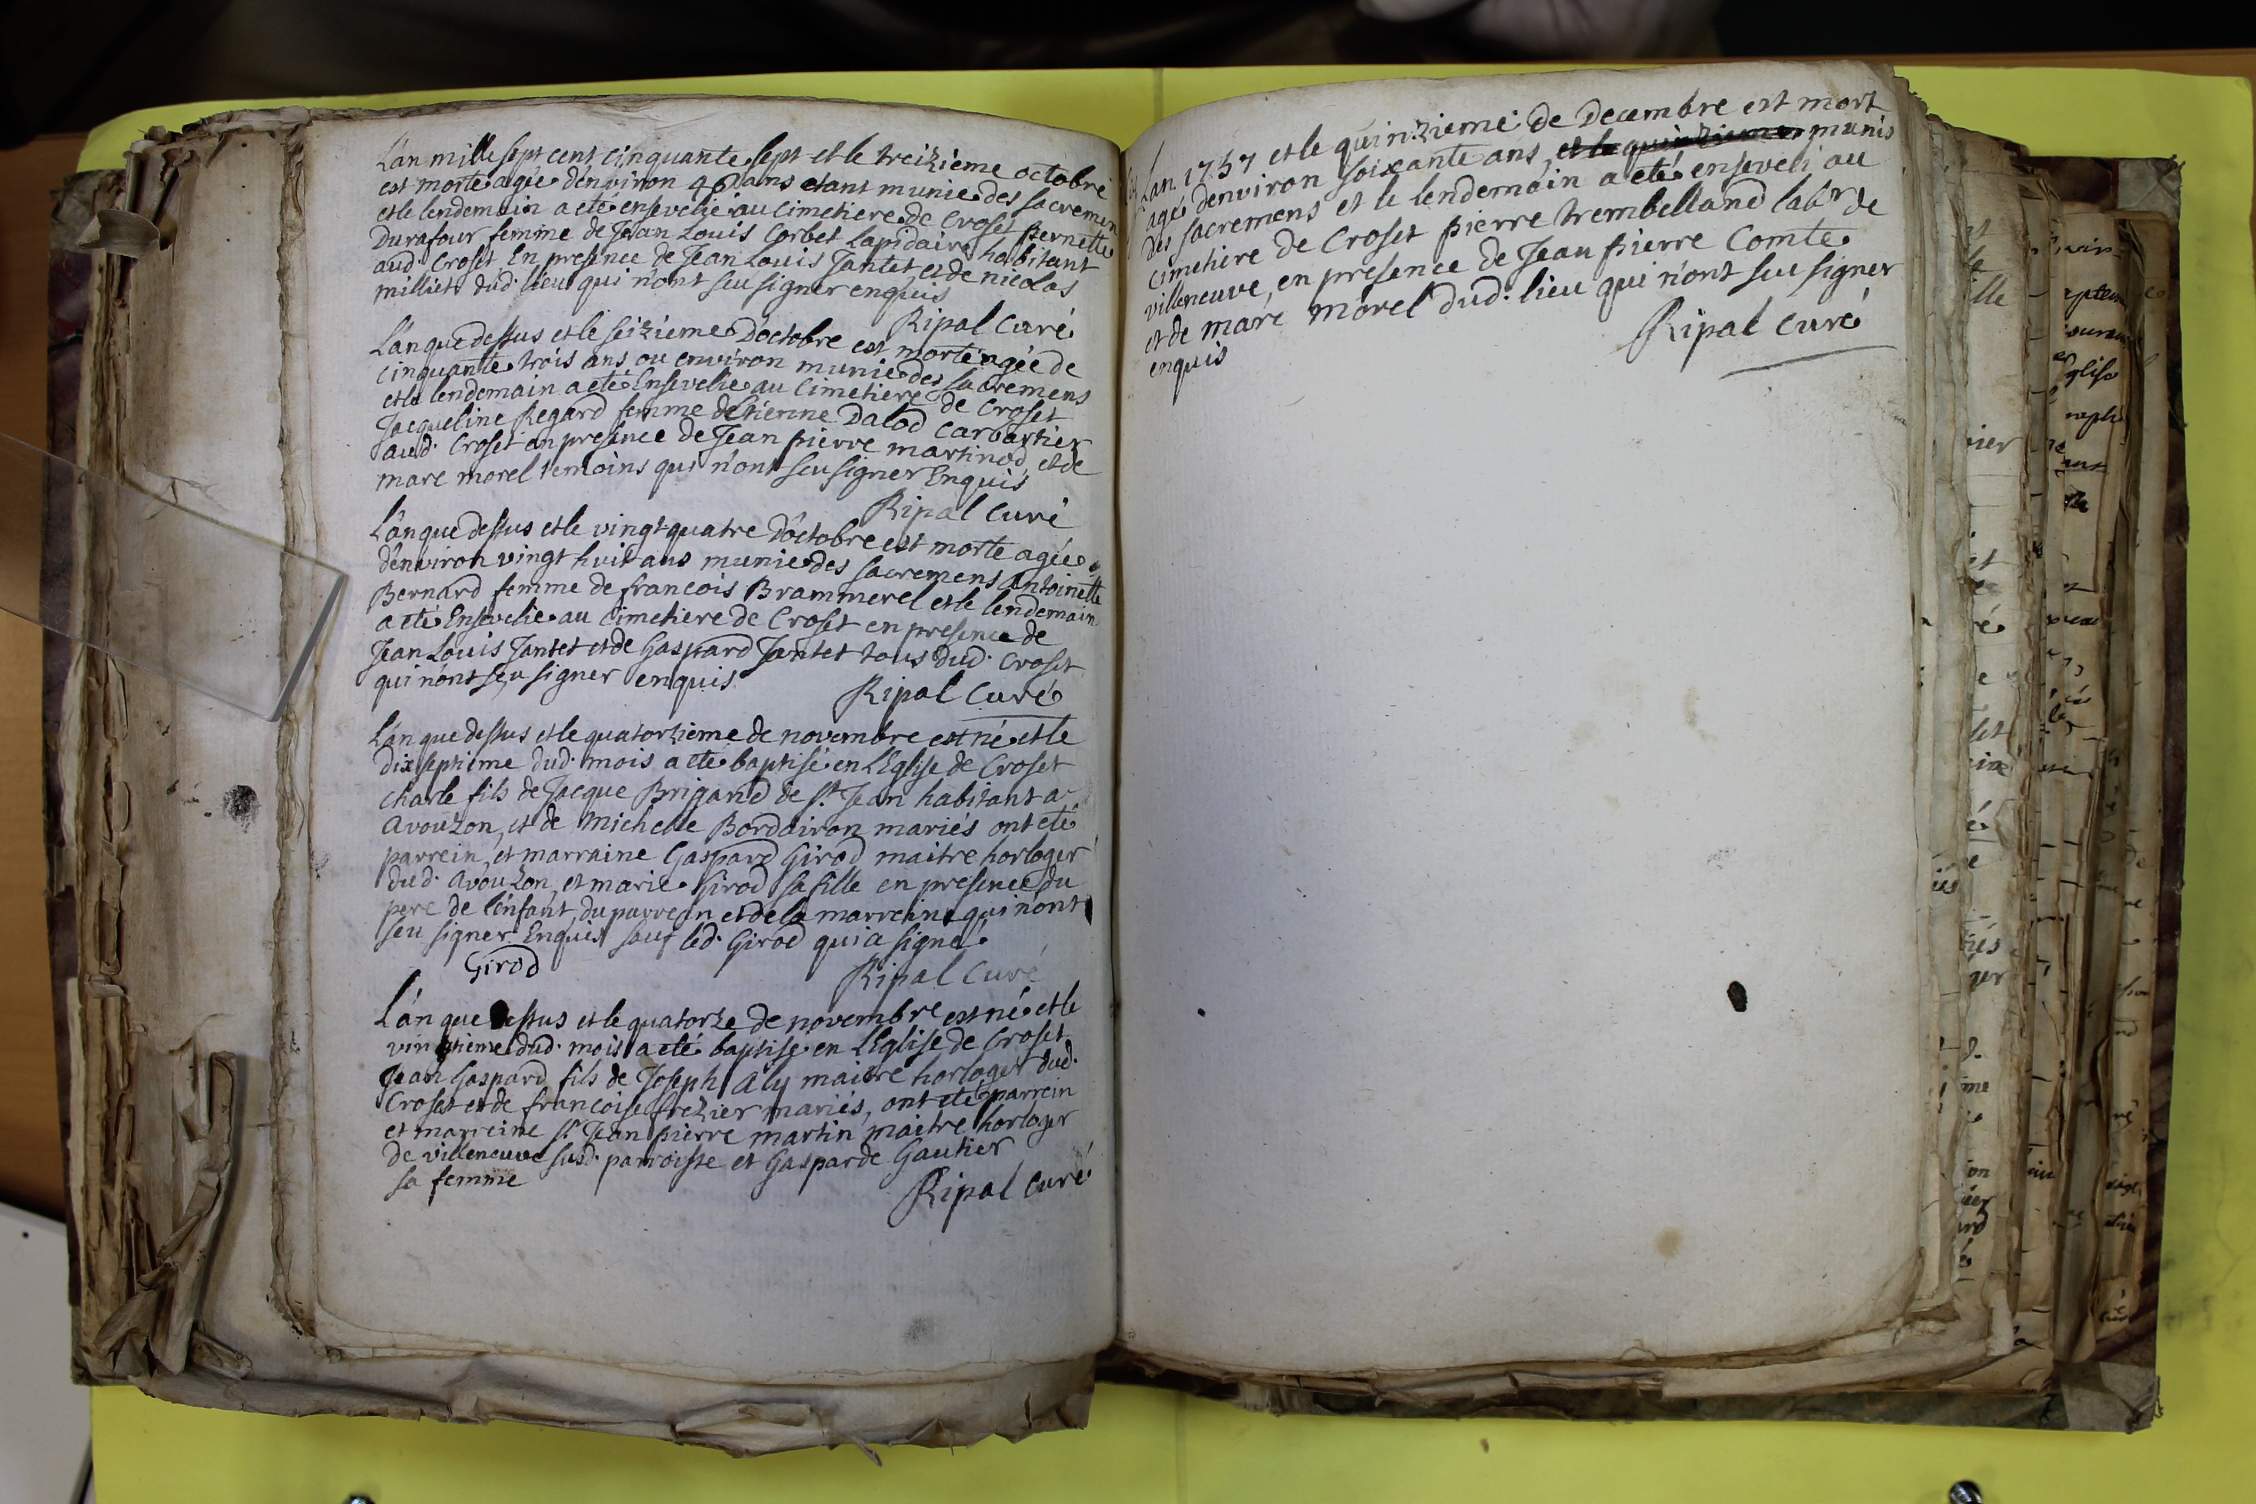 L'an mille sept cent cinquante sept et le treizieme octobre
est morte agée d'environ 46 ans etant munie des sacremen
et le lendemain a eté ensevelie au cimetiere de Croset pernette
Durafour femme de Jean Louis Corbet Lapidaire habitant
aud. Croset En presence de Jean Louis Jantet et de nicolas
milliet dud. lieu qui n'ont seu signer enquis
Ripal Curé
L'an que dessus et le seizieme D'octobre est morte agée de
cinquante trois ans ou environ munie des sacremens
et le lendemain a eté Ensevelie au Cimetiere de Croset
Jacqueline Regard femme d'Etienne Dalod Carbartier
aud. Croset en presence de Jean pierre martinod et de
marc morel temoins qui n'ont seu signer Enquis
Ripal Curé
L'an que dessus et le vingt quatre D'octobre est morte agée
d'environ vingt huit ans munie des sacremens Antoinette
Bernard femme de francois Brammerel et le lendemain
a eté Ensevelie au Cimetiere de Croset en presence de
Jean Louis Jantet et de Gaspard Jantet tous dud. Croset
qui n'ont seu signer enquis
Ripal Curé
L'an que dessus et le quatorzieme de novembre est né et le
dix septieme dud. mois a eté baptisé en L'Eglise de Croset
charle fils de Jacque Brigand de st. Jean habitant a
Avouzon, et de Michelle Bordairon mariés ont eté
parrein, et marraine Gaspard Girod maitre horloger
dud. Avouzon, et marie Girod sa fille en presence du
pere de l'enfant, du parrein et de la marreine qui n'ont
seu signer Enquis sauf led. Girod qui a signé.
Girod
Ripal Curé
L'an que dessus et le quatorze de novembre est né et le
vingtieme dud. mois a eté baptise en L'Eglise de Croset
Jean Gaspard fils de Joseph Aly maitre horloger dud.
Croset et de francoise frezier mariés, ont eté parrein
et marreine sr. Jean pierre martin maitre horloger
de villeneuve susd. parroisse et Gasparde Gautier
sa femme
Ripal Curé
Lan 1757 et le quinzieme de Decembre est mort
agé d'environ soixante ans, et le quinzieme munis
des sacremens et le lendemain a eté enseveli au
cimetiere de Croset pierre trembelland labr. de
villeneuve, en presence de Jean pierre Comte
et de marc morel dud. lieu qui n'ont seu signer
enquis
Ripal Curé